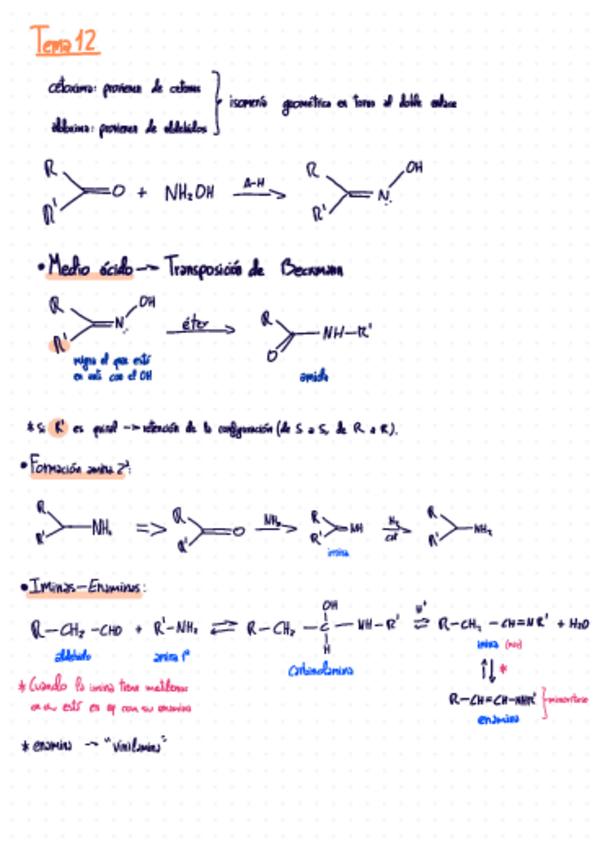 Tema 12
cetoxima: proviene de cetonas
aldoxima: proviene de aldehidos
isomería geométrica en torno al doble enlace
R
R'
O + NH₂OH
A-H
R
R'
N
OH
• Medio ácido → Transposición de Beckmann
R
R'
N
OH
éter
R
O
NH-R'
migra el que está
en anti con el OH
amida
* Si R' es quiral → retención de la configuración (de S a S, de R a R).
• Formación amina 2ª:
R
R'
NH₂
⇒
R
R'
O
NH₃
R
R'
NH
H₂
cat
R
R'
NH₂
imina
• Iminas-Enaminas:
R-CH₂-CHO + R'-NH₂ ⇌ R-CH₂-C-NH-R' ⇌ R-CH₂-CH=NR' + H₂O
OH
H
H⁺
aldehido
amina 1ª
carbinolamina
imina
* Cuando la imina tiene metilenos
en α está en eq con su enamina
*
R-CH=CH-NHR'
minoritario
enamina
* enamina → "vinilamina"